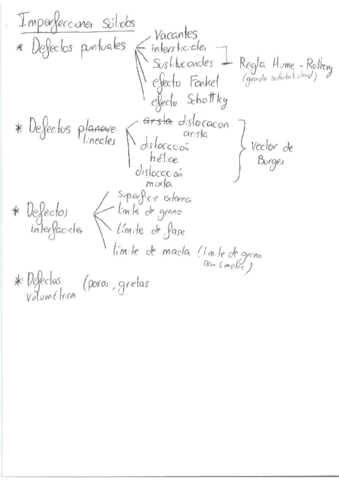 Imperfecciones Sólidos
* Defectos puntuales
Vacantes
intersticiales
Sustitucionales
efecto Fenkel
efecto Schottky
Regla Hume - Rothery
(grado solubilidad)
* Defectos planare
lineales
arista dislocacon
arista
dislocación
hélice
dislocación
mixta
Vector de
Burges
* Defectos
interfaciales
superficie externa
límite de grano
límite de fase
límite de macla (límite de grano
con simetría)
* Defectos
volumétricos
(poros, grietas